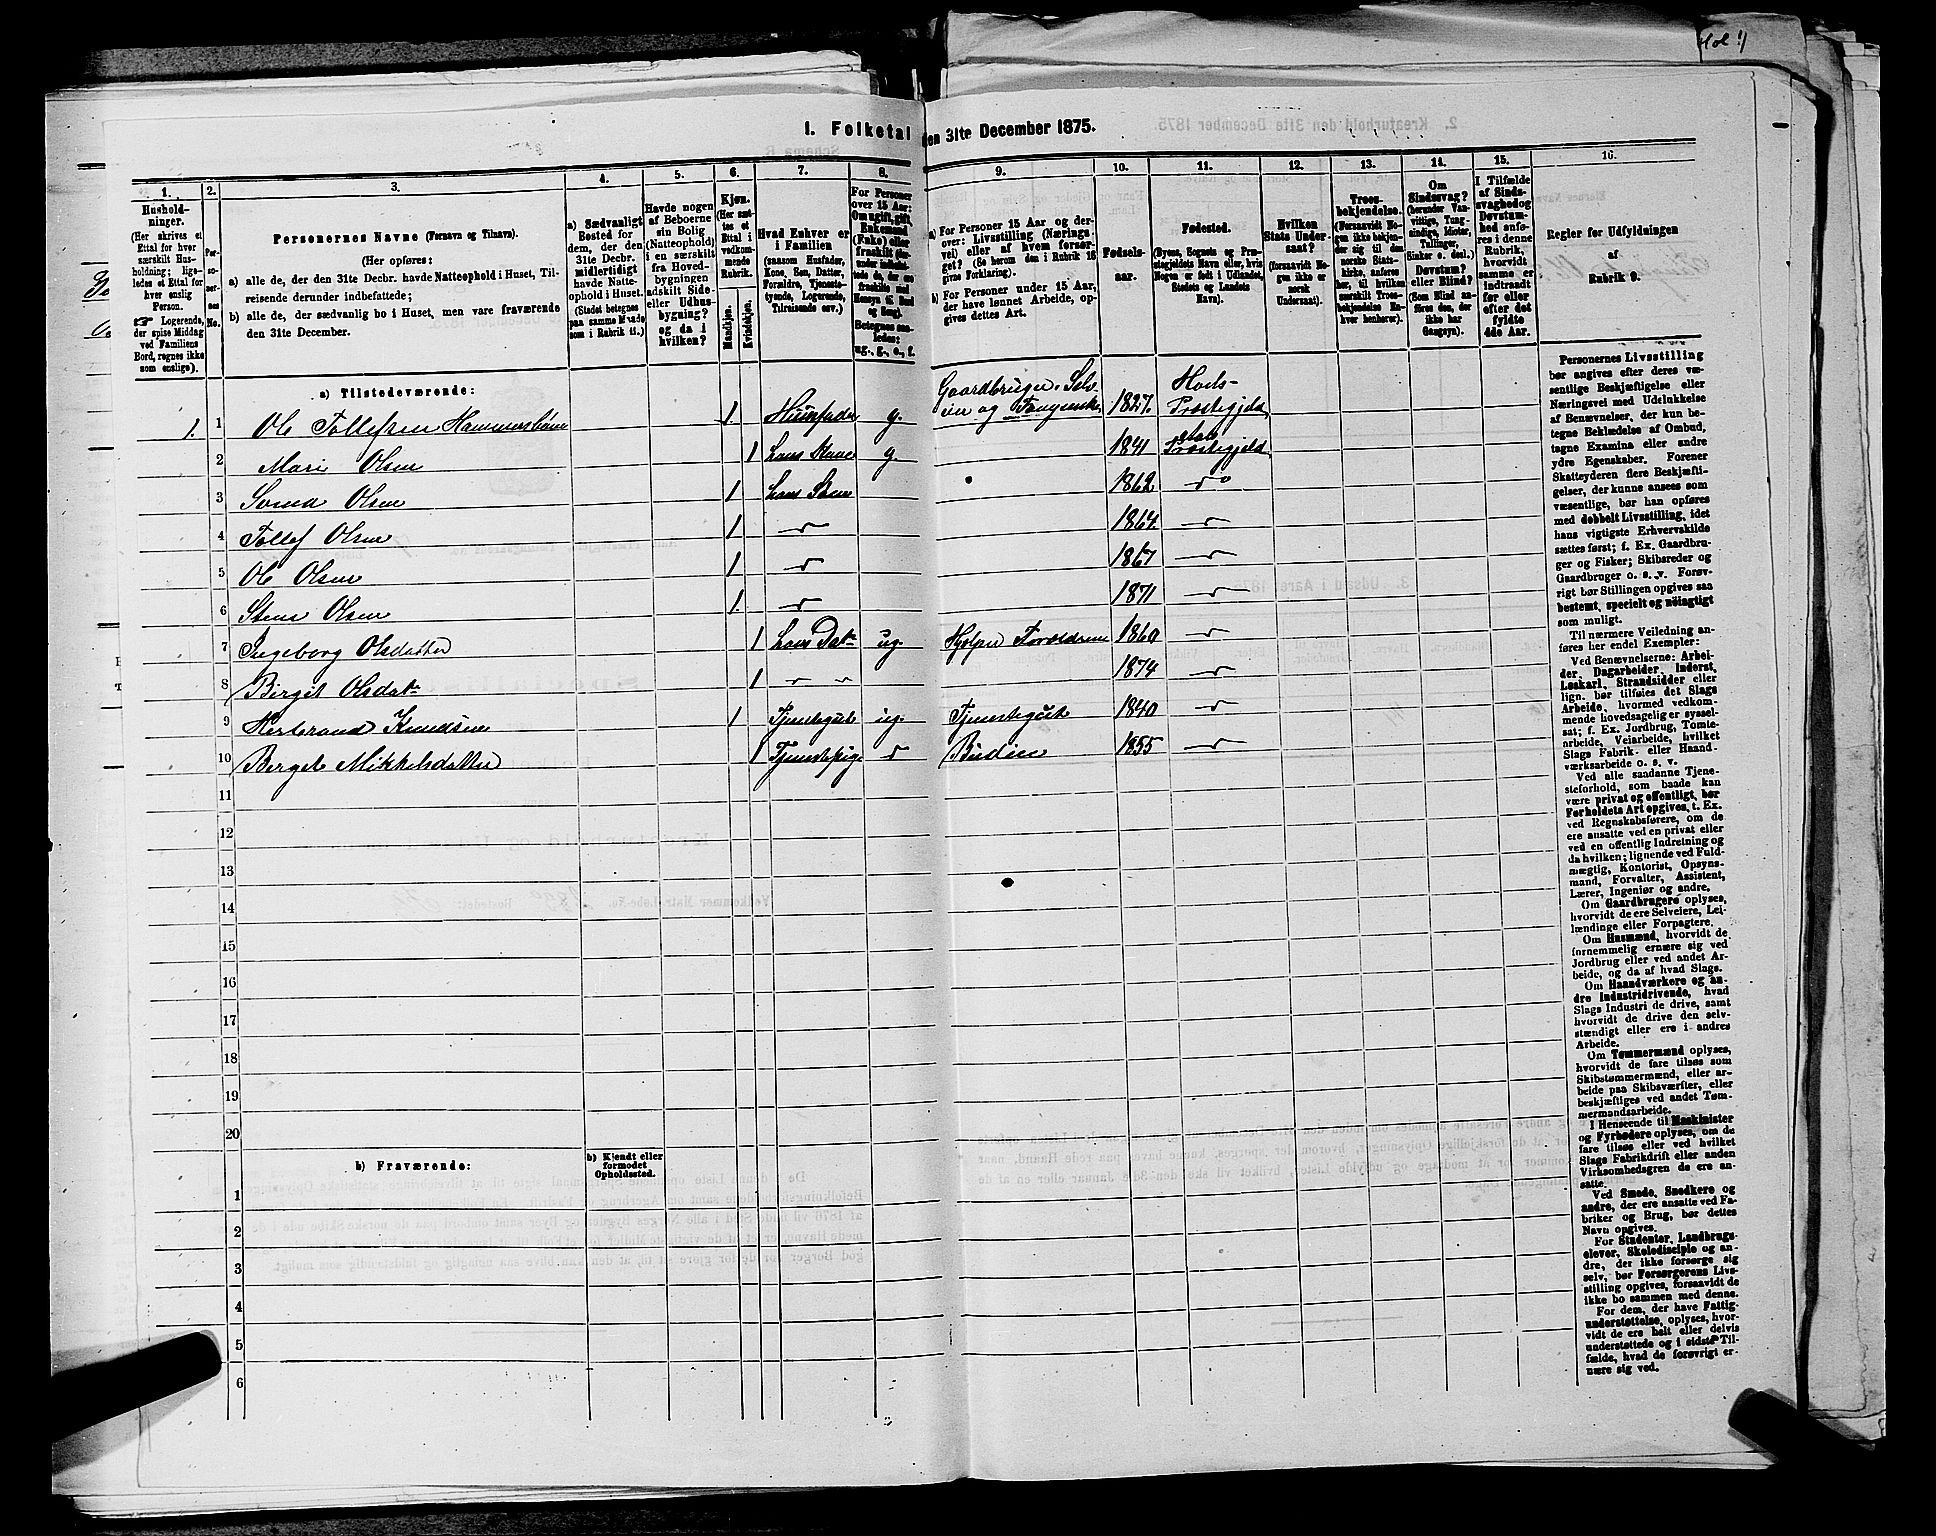 Hol 4
1. Folketal den 31te December 1875.
1.
2.
3.
4.
5.
6.
7.
8.
9.
10.
11.
12.
13.
14.
15.
16.
Hushold-
ninger.
(Her skrives et
Ettal for hver
særskilt Hus-
holdning; lige-
ledes et Ettal for
hver enslig
Person.
☞ Logerende,
der spise Middag
ved Familiens
Bord, regnes ikke
som enslige).
Per-
so-
ner-
nes
No.
Personernes Navne (Fornavn og Tilnavn).
(Her opføres:
a) alle de, der den 31te Decbr. havde Natteophold i Huset, Til-
reisende derunder indbefattede;
b) alle de, der sædvanlig bo i Huset, men vare fraværende
den 31te December.
a) Sædvanligt
Bosted for
dem, der den
31te Decbr.
midlertidigt
havde Natte-
ophold i Huset.
(Stedet betegnes
paa samme Maade
som i Rubrik 11.)
Havde nogen
af Beboerne
sin Bolig
(Natteophold)
i en særskilt
fra Hoved-
bygningen
adskilt Side-
eller Udhus-
bygning?
og da i
hvilken?
Kjøn.
(Her sæt-
tes et
Ettal i
vedkom-
mende
Rubrik.
Mandkjøn.
Kvindekjøn.
Hvad Enhver er
i Familien
(saasom Husfader,
Kone, Søn, Datter,
Forældre, Tjeneste-
tyende, Logerende,
Tilreisende osv.)
For Personer
over 15 Aar:
Om ugift, gift,
Enkemand
(Enke) eller
fraskilt
Betegnes saa-
ledes:
ug., g., e., f.
a) For Personer 15 Aar og der-
over: Livsstilling (Nærings-
vei) eller af hvem forsør-
get? (Se herom den i Rubrik 16
givne Forklaring).
b) For Personer under 15 Aar,
der have lønnet Arbeide, op-
gives dettes Art.
Fødsels-
aar.
Fødested.
(Byens, Sognets og Præ-
stegjeldets Navn eller, hvis
Nogen er født i Udlandet,
Stedets og Landets
Navn).
Hvilken
Stats Under-
saat?
(forsaavidt No-
gen ikke er
norsk
Undersaat).
Troes-
bekjendelse.
(Forsaavidt No-
gen ikke bekjen-
der sig til den
norske Stats-
kirke, anføres
her, til hvilken
særskilt Troes-
bekjendelse En-
hver henhører).
Om
Sindssvag?
(herunder Van-
vittige, Tung-
sindige, Idioter,
Tullinger,
Sinker o. desl.)
Døvstum?
eller Blind?
(Som Blind an-
føres den, der
ikke har
Gangsyn).
I Tilfælde
af Sinds-
svaghed og
Døvstum-
hed anfø-
res i denne
Rubrik,
hvorvidt
samme er
indtraadt
før eller ef-
ter det
fyldte
4de Aar.
Regler for Udfyldningen
af
Rubrik 9.
a) Tilstedeværende:
1. 1 Ole Tollefsen Hammersbøen 1. Husfader g. Gaardbruger, Selv-
eier og 1827. Hols-
Præstegjeld
2 Mari Olsen 1 hans Kone g. 1841 Hols
Præstegjeld
3 Svend Olsen 1 hans Søn 1862 do
4 Tollef Olsen 1 1864
5 Ole Olsen 1 1867
6 Stener Olsen 1 1871
7 Ingeborg Olsdatter 1 hans Dat. ug. Hjelper Forældrene 1860
8 Birget Olsdat. 1 1874
9 Herbrand Knudsen 1 Tjenstegut ug. Tjenstegut 1840
10 Berget Mikkelsdatter 1 Tjenstepige Budeie 1855
11
12
13
14
15
16
17
18
19
20
b) Fraværende:
b) Kjendt eller
formodet
Opholdssted.
1
2
3
4
5
6
Personernes Livsstilling
bør angives efter deres væ-
sentlige Beskjæftigelse eller
Næringsvei med Udelukkelse
af Benævnelser, der kun be-
tegne Beklædelse af Ombud,
tagne Examina eller andre
ydre Egenskaber. Forener
Skatteyderen flere Beskjæfti-
gelser, der kunne ansees som
væsentlige, bør han opføres
med dobbelt Livsstilling, idet
hans vigtigste Erhvervskilde
sættes først; f. Ex. Gaardbru-
ger og Fisker; Skibsreder og
Gaardbruger o. s. v. Forøv-
rigt bør Stillingen opgives saa
bestemt, specielt og nøiagtigt
som muligt.
Til nærmere Veiledning an-
føres her endel Exempler:
Ved Benævnelserne: Arbei-
der, Dagarbeider, Inderst,
Løskarl, Strandsidder eller
lign. bør tilføies det Slags
Arbeide, hvormed vedkom-
mende hovedsagelig er syssel-
sat; f. Ex. Jordbrug, Tomte-
arbeide, Veiarbeide, hvilket
Slags Fabrik- eller Haand-
værksarbeide o. s. v.
Ved alle saadanne Tjene-
steforhold, som baade kan
være privat og offentligt, bør
Forholdets Art opgives, t. Ex.
ved Regnskabsførere, om de
ere ansatte ved en privat eller
ved en offentlig Indretning og
da hvilken; lignende ved Fuld-
mægtig, Kontorist, Opsyns-
mand, Forvalter, Assistent,
Lærer, Ingeniør og andre.
Om Gaardbrugere oplyses,
hvorvidt de ere Selveiere, Lei-
lændinge eller Forpagtere.
Om Husmænd, hvorvidt de
fornemmelig ernære sig ved
Jordbrug eller ved andet Ar-
beide, og da af hvad Slags.
Om Haandværkere og an-
dre Industridrivende, hvad
Slags Industri de drive, samt
hvorvidt de drive den selv-
stændigt eller ere i andres
Arbeide.
Om Tømmermænd oplyses,
hvorvidt de fare tilsøs som
Skibstømmermænd, eller ar-
beide paa Skibsværfter, eller
beskjæftiges ved andet Tøm-
mermandsarbeide.
I Henseende til Maskinister
og Fyrbødere oplyses, om de
fare tilsøs eller ved hvilket
Slags Fabrikdrift eller anden
Virksomhed gren de ere an-
satte.
Ved Smede, Snedkere og
andre, der ere ansatte ved Fa-
briker og Brug, bør dettes
Navn opgives.
For Studenter, Landbrugs-
elever, Skoledisciple og an-
dre, der ikke forsørge sig
selv, bør Forsørgerens Livs-
stilling opgives, forsaavidt de
ikke bo sammen med denne.
For dem, der have Fattig-
understøttelse, oplyses, hvor-
vidt de ere helt eller delvis
understøttede og i sidste Til-
fælde, hvad de forøvrigt er-
nære sig ved.